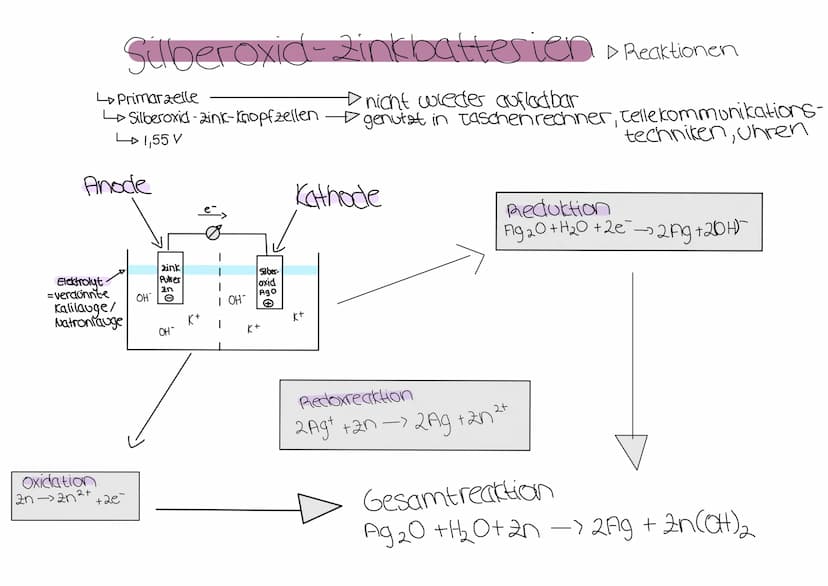 Silberoxid-Zinkbatterien ▷ Reaktionen
↳ Primärzelle → nicht wieder aufladbar
↳ Silberoxid-Zink-Knopfzellen → genutzt in Taschenrechner, Tellekommunikations-
techniken, Uhren
↳ 1,55 V
Anode
Kathode
e⁻
Elektrolyt
= verdünnte
Kalilauge/
Natronlauge
Zink
Pulver
Zn
⊖
Silber-
oxid
AgO
⊕
OH⁻
OH⁻
OH⁻
K⁺
K⁺
K⁺
Reduktion
Ag₂O + H₂O + 2e⁻ → 2Ag + 2(OH)⁻
Redoxreaktion
2Ag⁺ + Zn → 2Ag + Zn²⁺
Oxidation
Zn → Zn²⁺ + 2e⁻
Gesamtreaktion
Ag₂O + H₂O + Zn → 2Ag + Zn(OH)₂